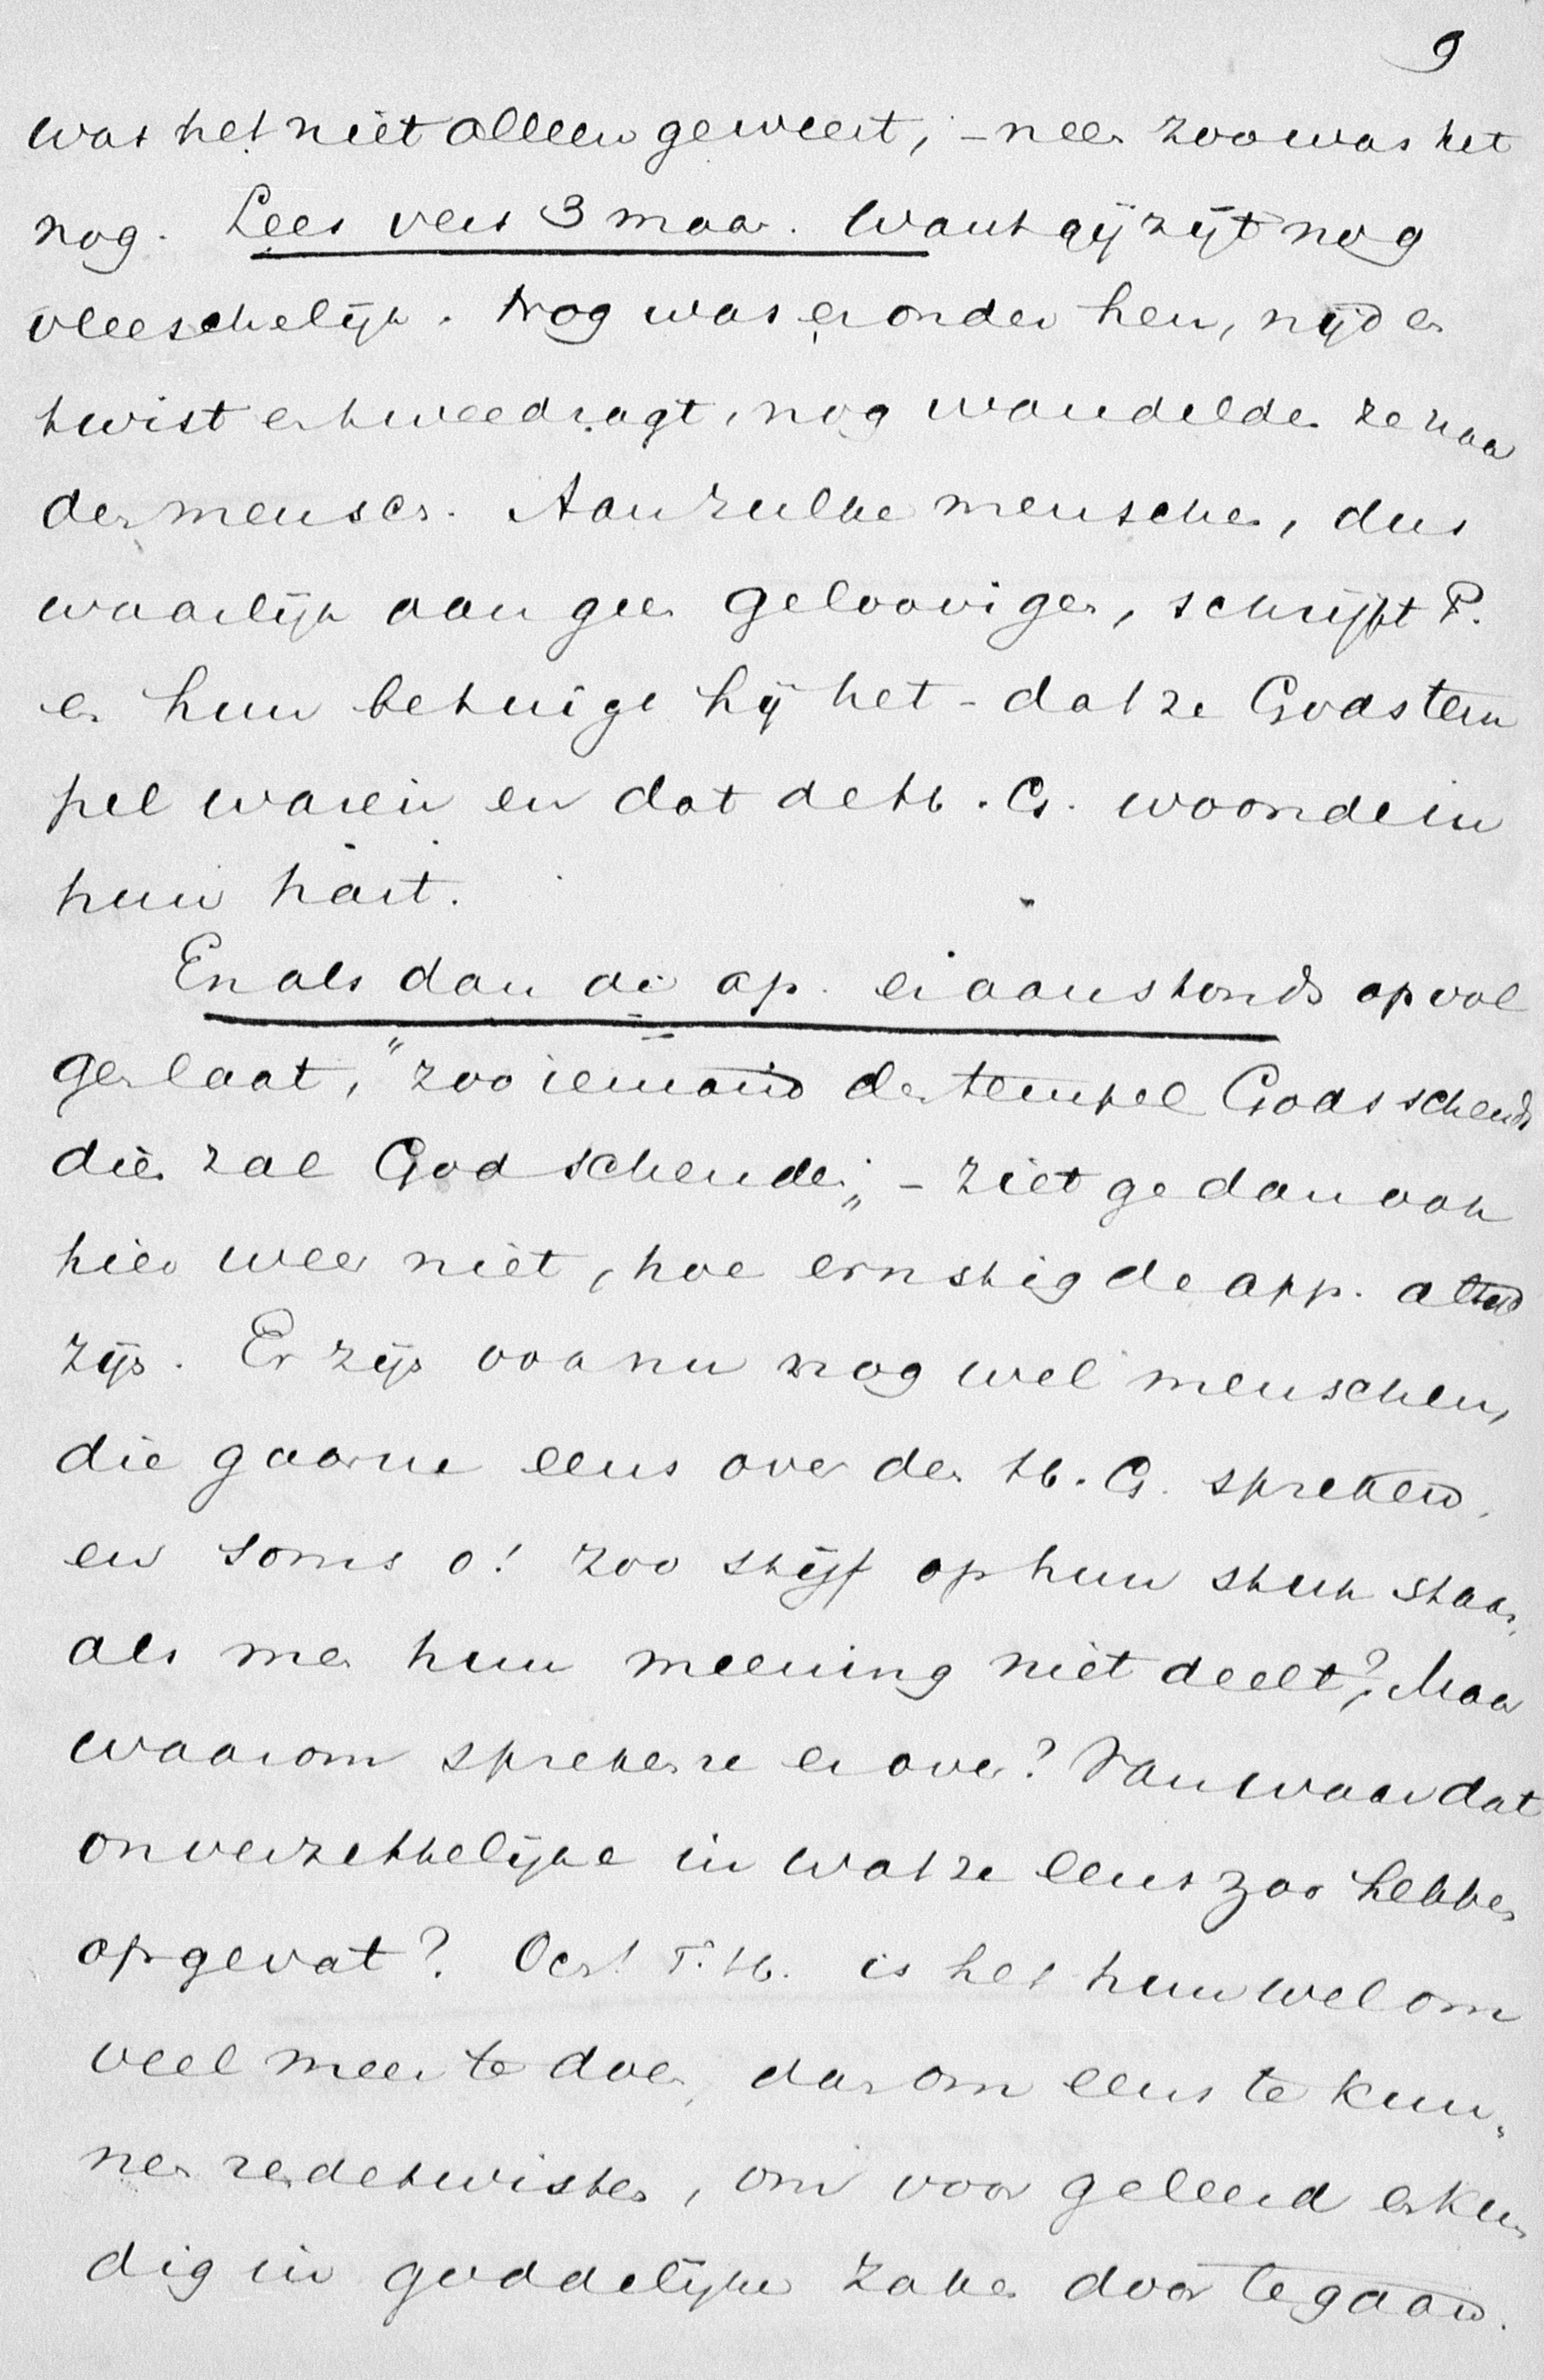 9
was het niet alleen geweest, – neen zoo was het
nog. Lees vers 3 maar. Want gij zijt nog
vleeschelijk. Nog was er onder hen, nijd en
twist en tweedragt, nog wandelden ze naar
den mensch. Aan zulke menschen, dus
waarlijk aan geen geloovigen, schrijft P.
en hun betuigt hij het – dat ze Gods tem
pel waren en dat de H. G. woonde in
hun hart.
En als dan de ap. er aanstonds op vol
gen laat, "zoo iemand den tempel Gods schendt
dien zal God schenden," – ziet ge dan ook
hier weer niet, hoe ernstig de app. altijd
zijn. Er zijn ook nu nog wel menschen,
die gaarne eens over den H. G. spreken,
en soms o! zoo stijf op hun stuk staan,
als men hun meening niet deelt? Maar
waarom spreken ze er over? Van waar dat
onverzettelijke in wat ze eens zoo hebben
opgevat? Och! T. H. is het hun wel om
veel meer te doen, dan om eens te kun„
nen redetwisten, om voor geleerd en kun
dig in goddelijke zaken door te gaan.